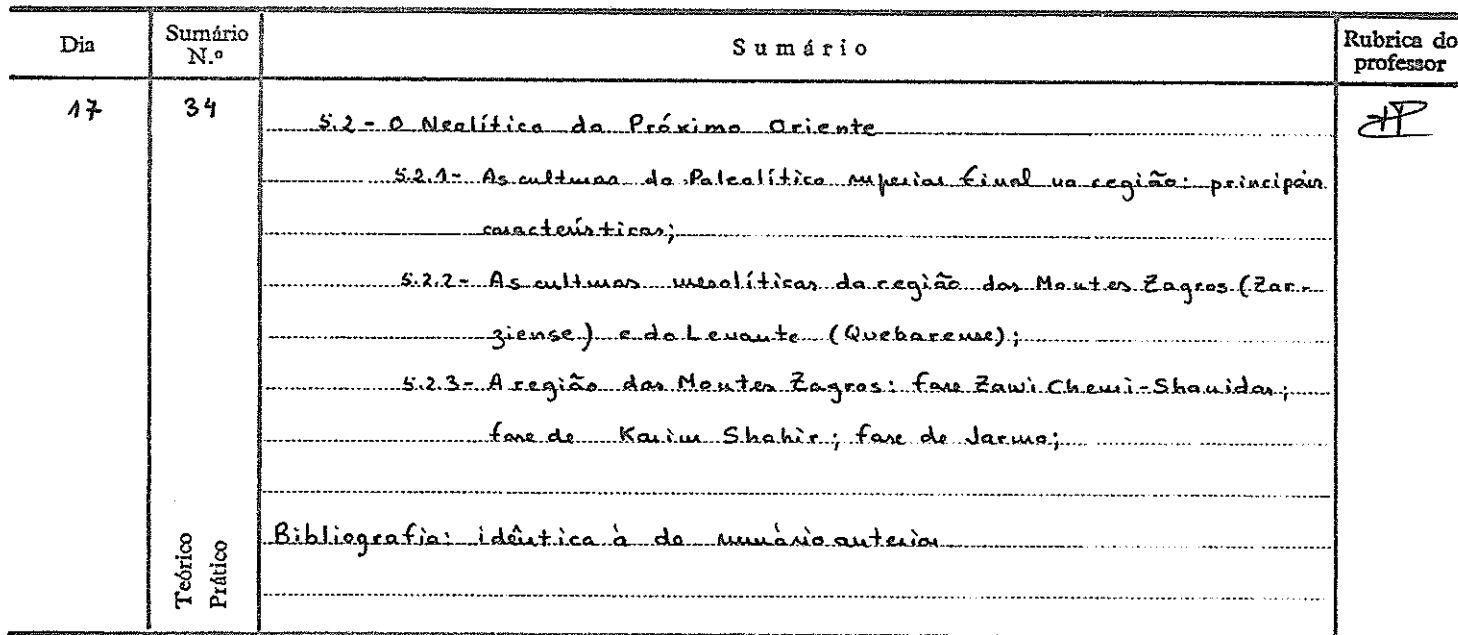 Dia
Sumário N.º
Sumário
Rubrica do professor
17
34
5.2 - O Neolítico do Próximo Oriente
5.2.1 - As culturas do Paleolítico superior final na região: principais
características;
5.2.2 - As culturas mesolíticas da região dos Montes Zagros (Zar-
ziense) e do Levante (Quebarense);
5.2.3 - A região dos Montes Zagros: fase Zawi Chemi-Shanidar;
fase de Karim Shahir; fase de Jarmo;
Bibliografia: idêntica à do sumário anterior
Teórico
Prático